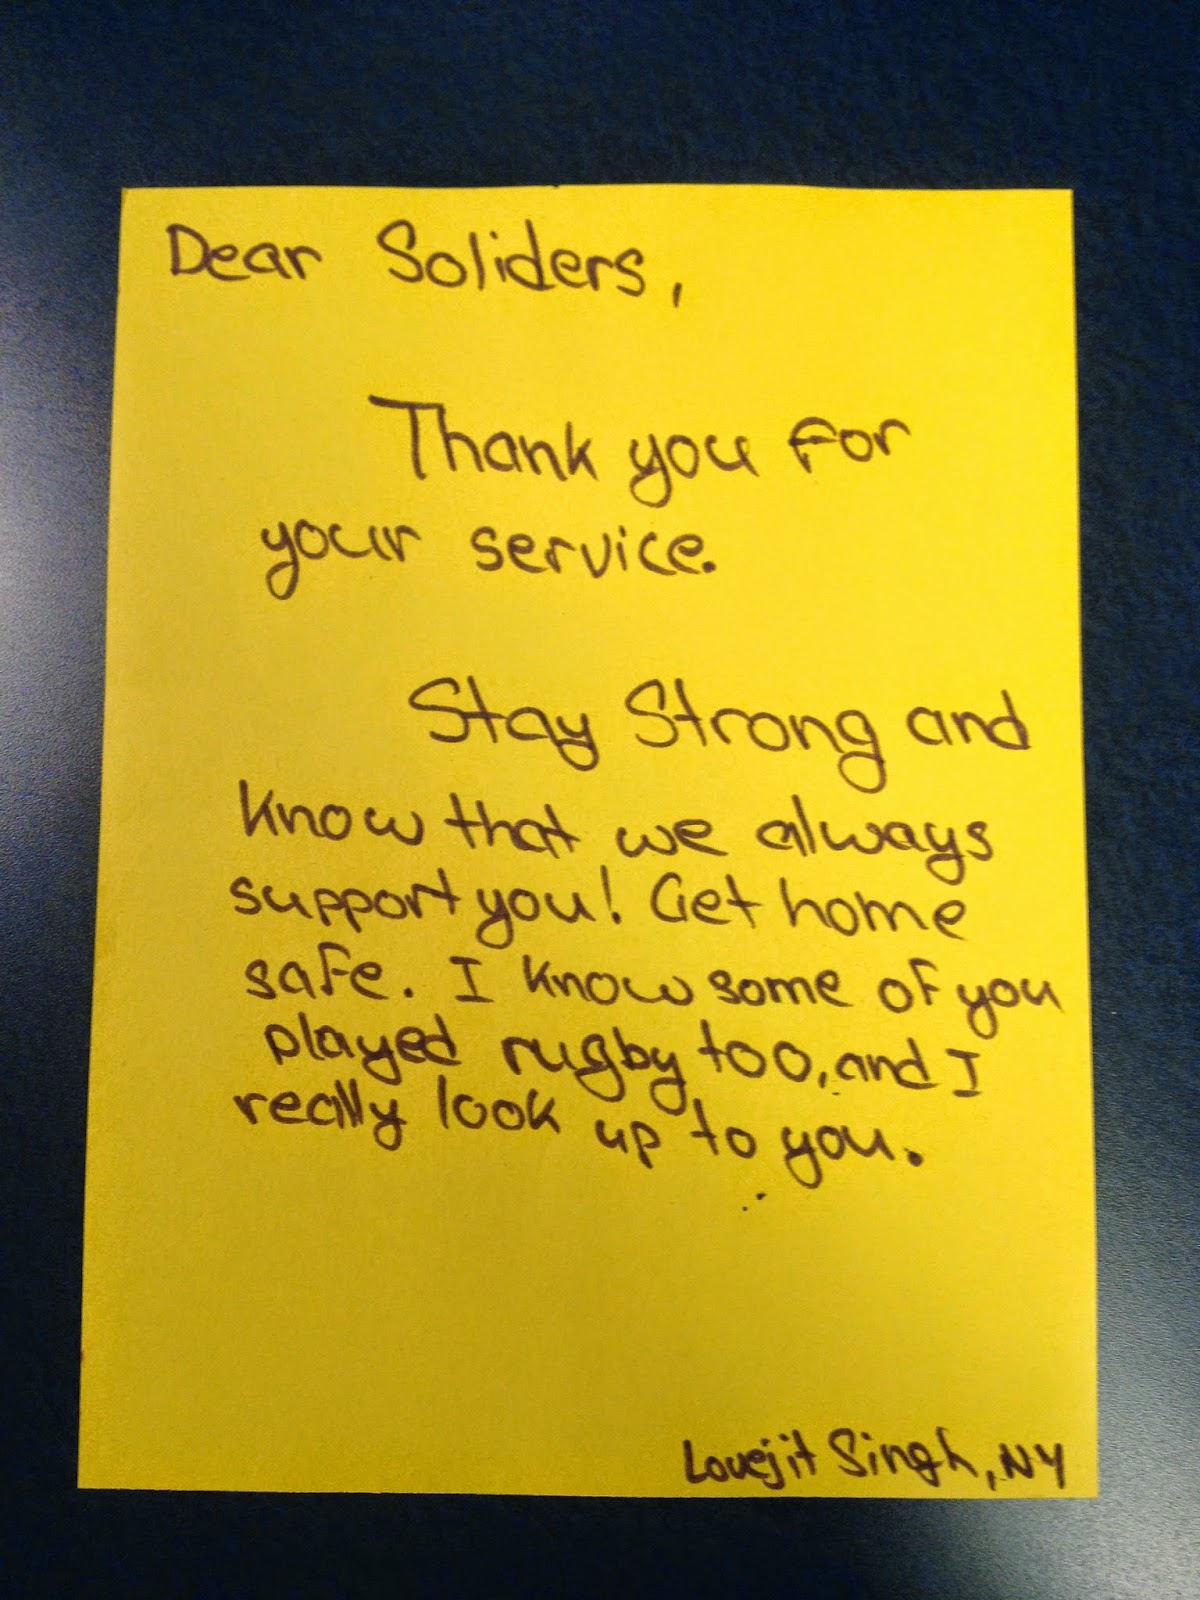 Dear Soliders,
Thank you for
your service.
Stay Strong and
know that we always
support you! Get home
safe. I know some of you
played rugby too, and I
really look up to you.
Lovejit Singh, NY